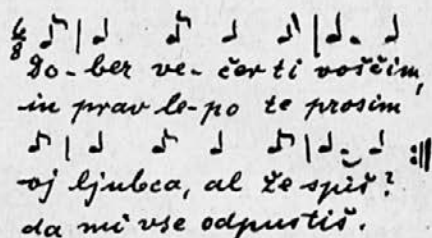 6/8
Do-ber ve-čer ti voščim,
in prav le-po te prosim
oj ljubca, al že spiš?
da mi vse odpustiš.